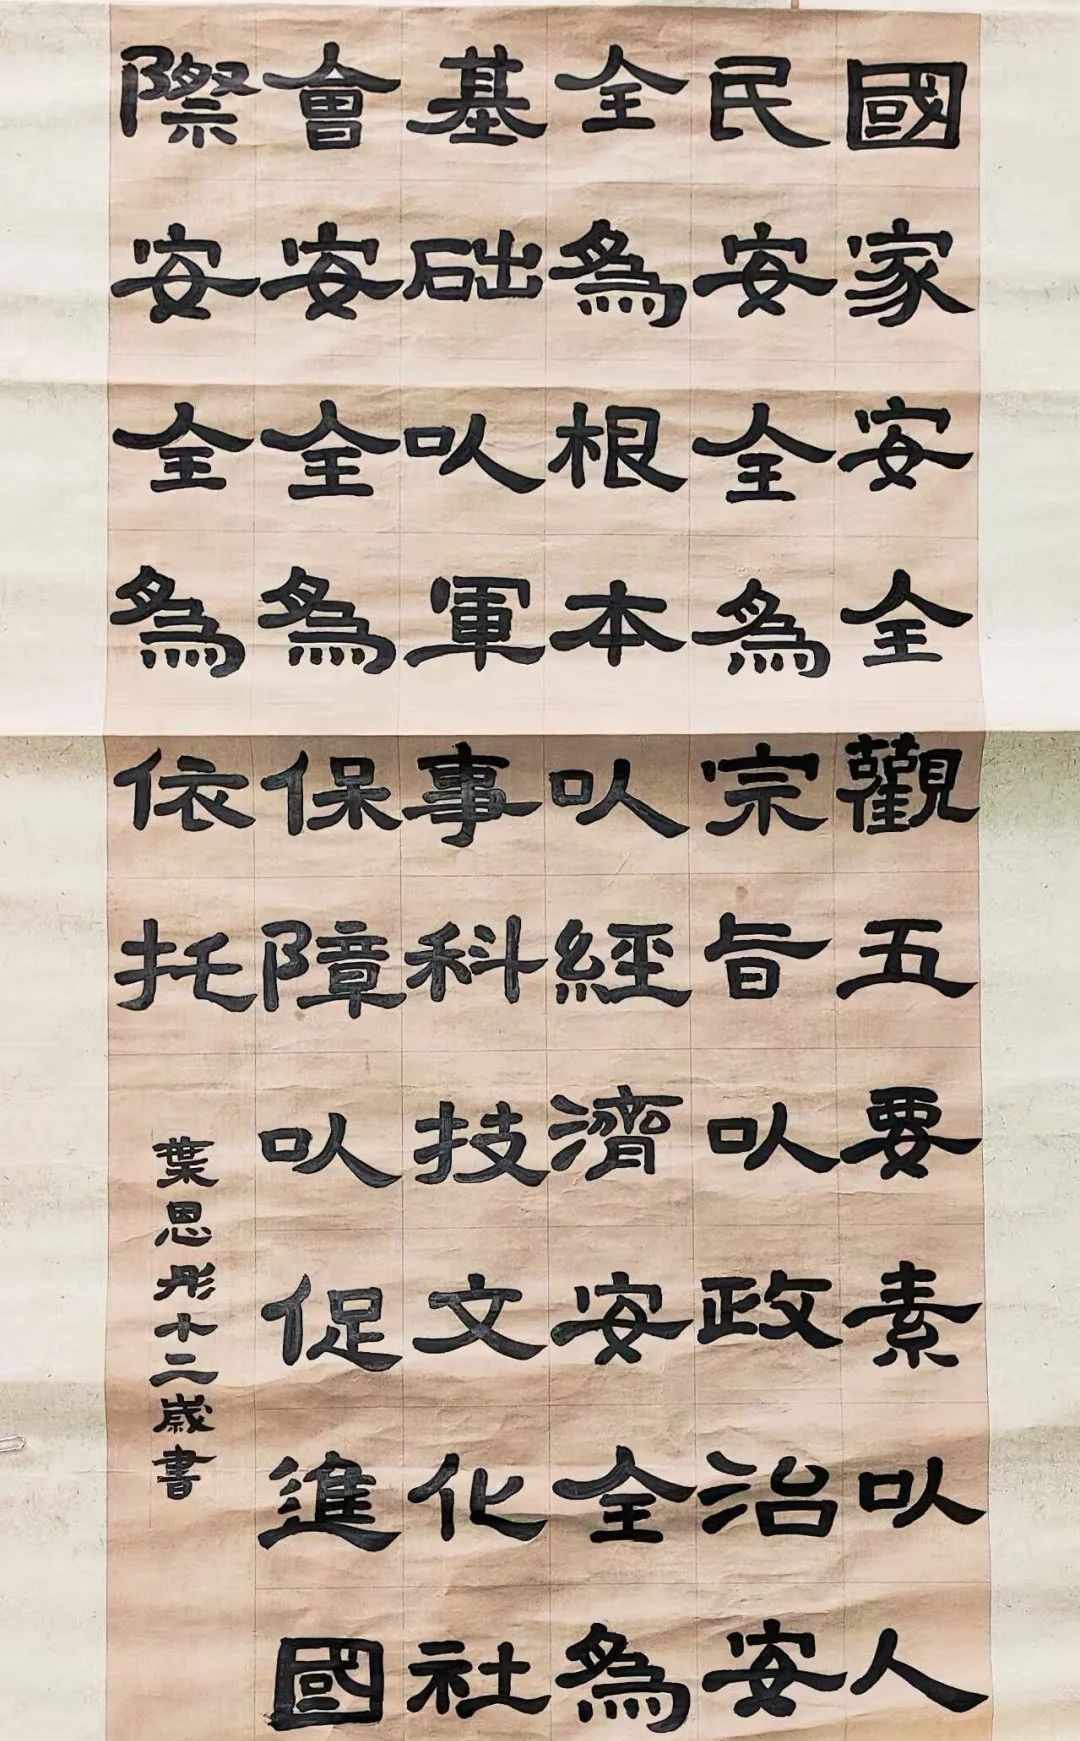 國家安全觀五要素以人
民安全為宗旨以政治安
全為根本以經濟安全為
基础以軍事科技文化社
會安全為保障以促進國
際安全為依托
葉恩彤十二歲書